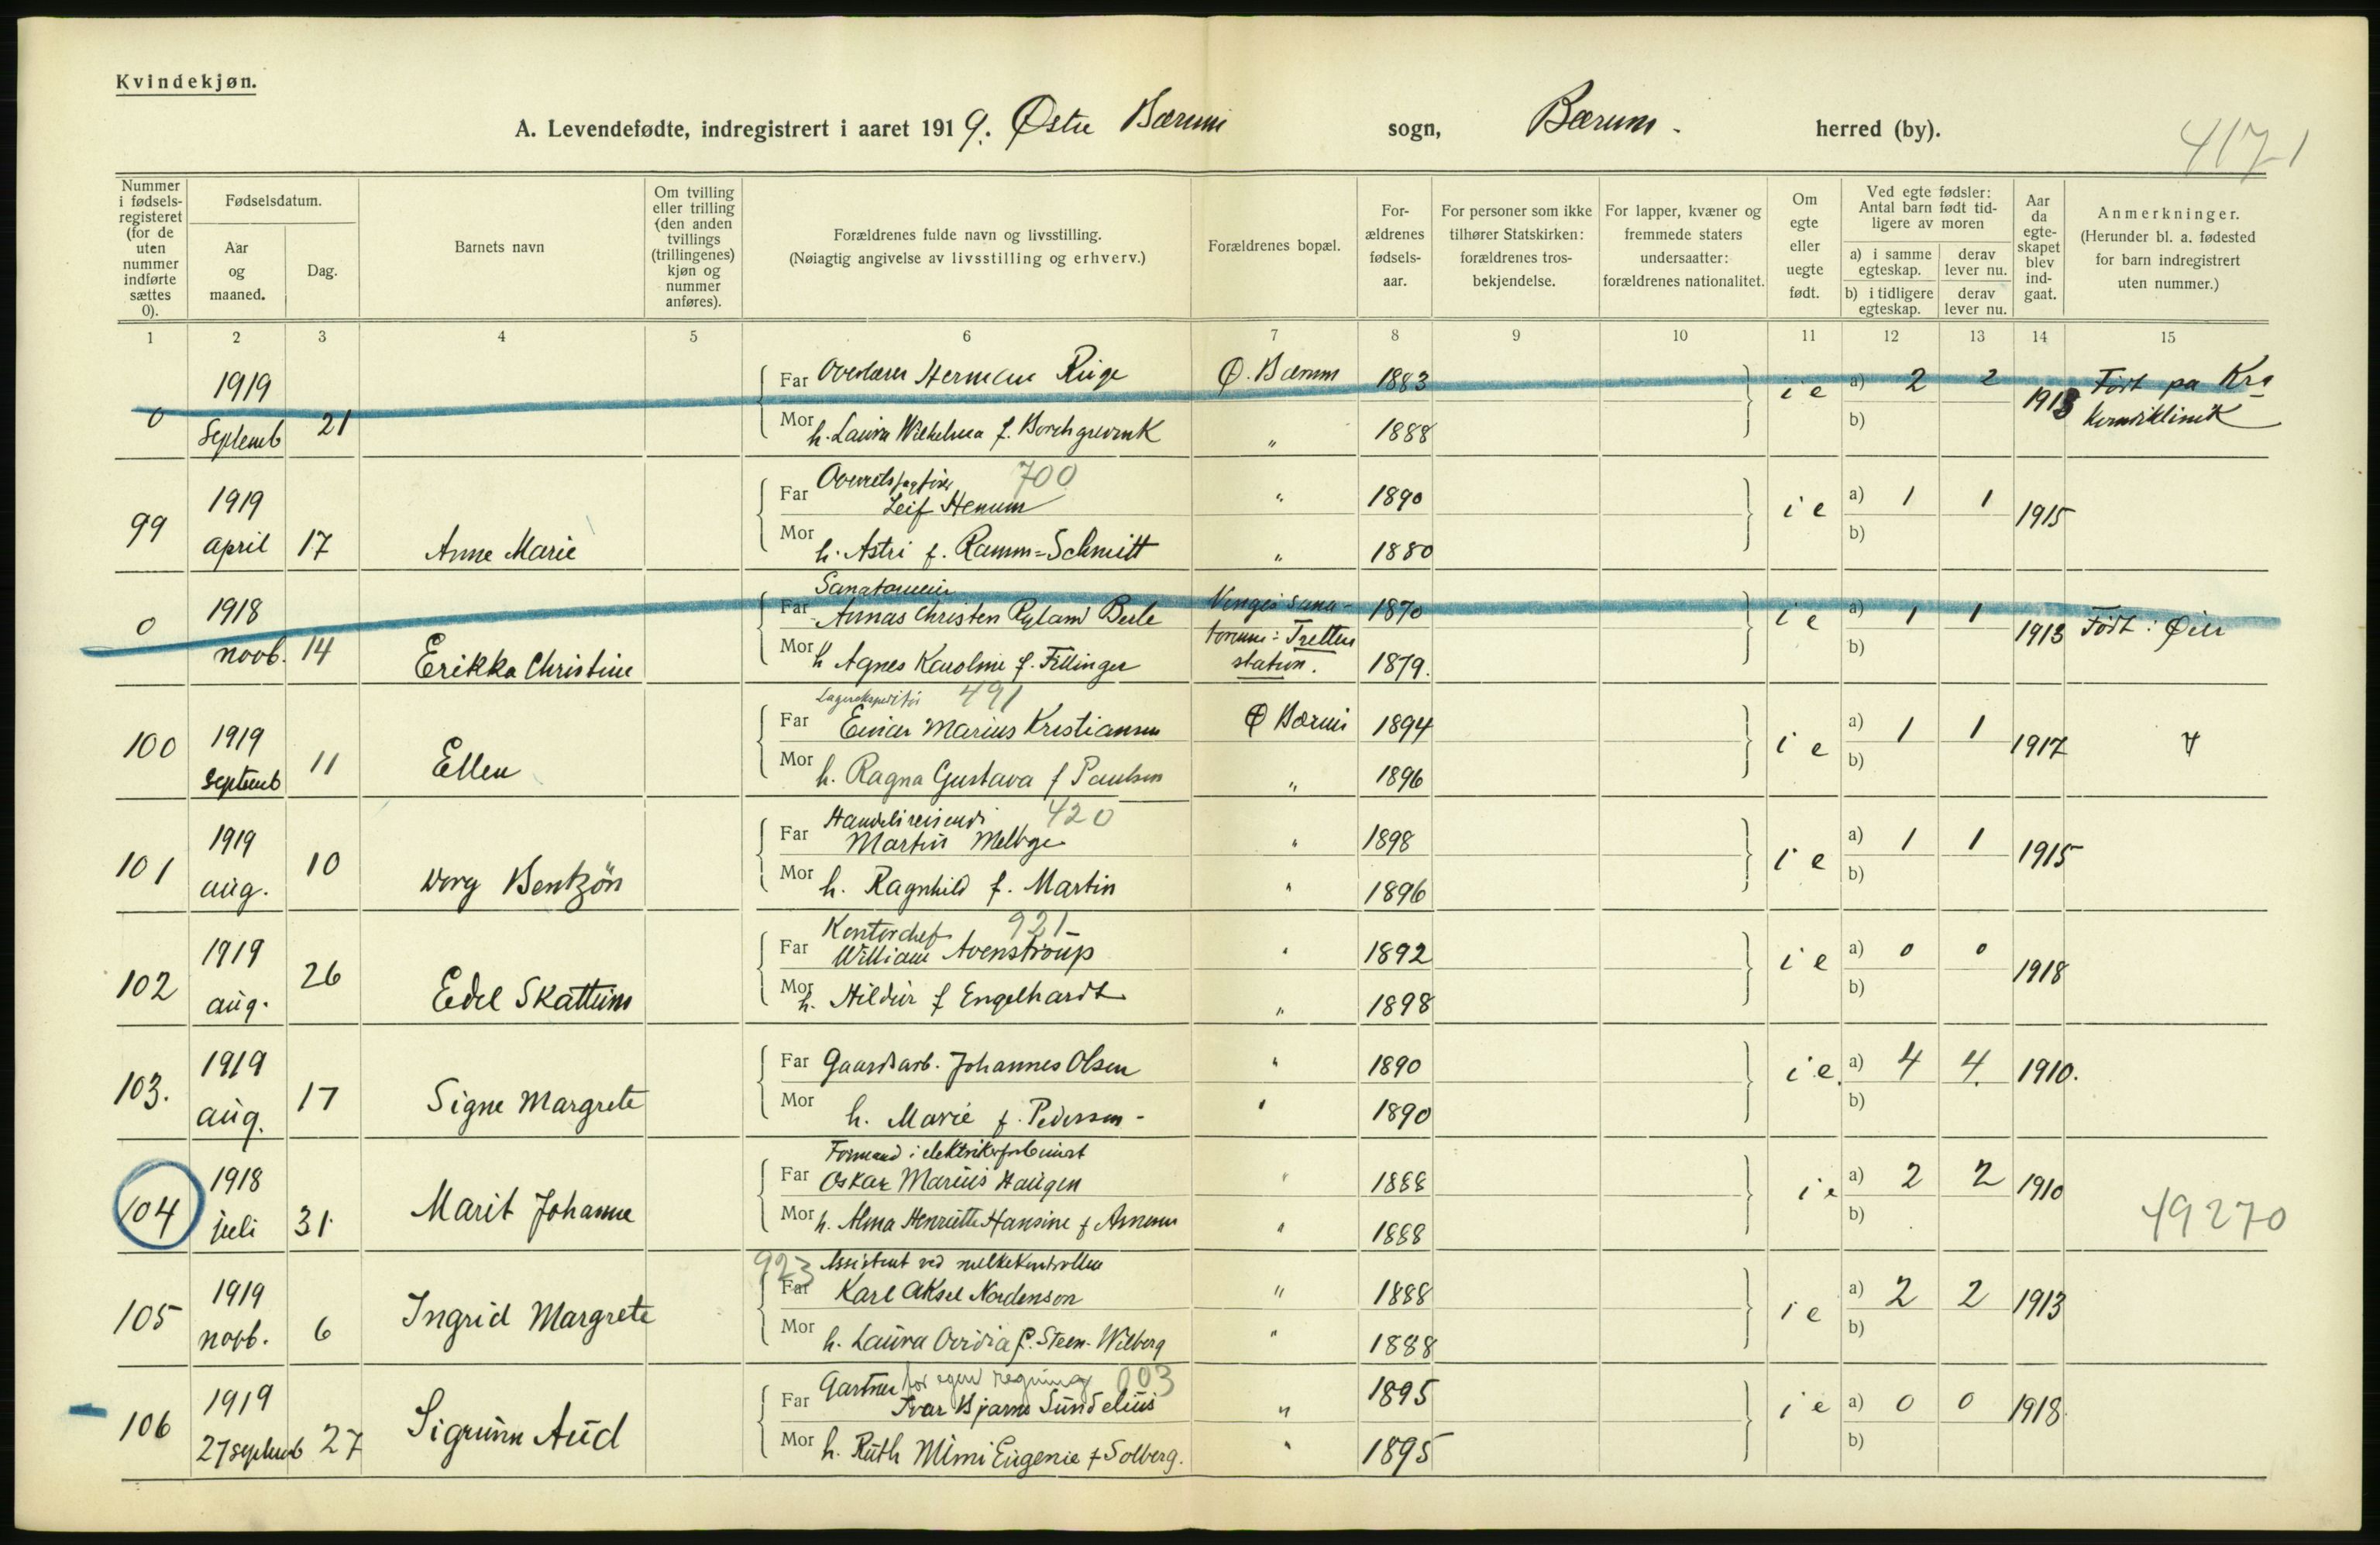 Kvindekjøn.
A. Levendefødte, indregistrert i aaret 1919. Østre Bærum sogn, Bærum. herred (by).
4171
Nummer i fødsels-registeret (for de uten nummer indførte sættes 0).
Fødselsdatum.
Aar og maaned.
Dag.
Barnets navn
Om tvilling eller trilling (den anden tvillings (trillingenes) kjøn og nummer anføres).
Forældrenes fulde navn og livsstilling.
(Nøiagtig angivelse av livsstilling og erhverv.)
Forældrenes bopæl.
For-ældrenes fødsels-aar.
For personer som ikke tilhører Statskirken: forældrenes tros-bekjendelse.
For lapper, kvæner og fremmede staters undersaatter: forældrenes nationalitet.
Om egte eller uegte født.
Ved egte fødsler: Antal barn født tid-ligere av moren
a) i samme egteskap.
derav lever nu.
b) i tidligere egteskap.
derav lever nu.
Aar da egte-skapet blev ind-gaat.
Anmerkninger.
(Herunder bl. a. fødested for barn indregistrert uten nummer.)
1 2 3 4 5 6 7 8 9 10 11 12 13 14 15
0 1919 Septemb 21
Far Overlærer Herman Ruge Ø. Bærum 1883 i e a) 2 2 1913 Født på Kra
Mor h. Laura Wilhelma f. Borchgrevink " 1888 b) kvindeklinik
99 1919 april 17 Anne Marie
Overretssagfører 700
Far Leif Henum " 1890 i e a) 1 1 1915
Mor h. Astri f. Ramm=Schmitt " 1880 b)
0 1918 novb. 14 Erikka Christine
Sanatorieeier
Far Annas Christen Ryland Berle Vinges sana- 1870 i e a) 1 1 1913 Født: Øier
torium: Tretten
Mor h Agnes Karoline f. Fillinger station. 1879. b)
100 1919 Septemb 11 Ellen
Lagerekspeditør 491
Far Einar Marius Kristiansen Ø Bærum 1894 i e a) 1 1 1917
Mor h. Ragna Gustava f Paulsen " 1896 b)
101 1919 aug. 10 Bentzön
Handelsreisende 420
Far Martin " 1898 i e a) 1 1 1915
Mor h. Ragnhild f. Martin " 1896 b)
102 1919 aug. 26 Edel Skattum
Kontorchef 921
Far William Avenstroup " 1892 i e a) 0 0 1918
Mor h. Hildur f Engelhardt " 1898 b)
103. 1919 aug. 17 Signe Margrete
Far Gaardsarb. Johannes Olsen " 1890 i e. a) 4 4. 1910.
Mor h. Marie f. Pedersen - " 1890 b)
104 1918 juli 31 Marit Johanne
Formand i
Far Oskar Marius Haugen " 1888 i e a) 2 2 1910
Mor h. Alma Henriette Hansine f Arnesen " 1888 b)
49270
105 1919 novb. 6 Ingrid Margrete
923 Assistent ved melkekontrollen
Far Karl Aksel Nordenson " 1888 i e a) 2 2 1913
Mor h. Laura Ovidia f. Steen-Wilberg " 1888 b)
106 1919 27 septemb 27 Sigrunn Aud
Gartner for egen regning 003
Far Ivar Bjarne Sundelius " 1895 i e a) 0 0 1918.
Mor h. Ruth Mimi Eugenie f Solberg. " 1895 b)